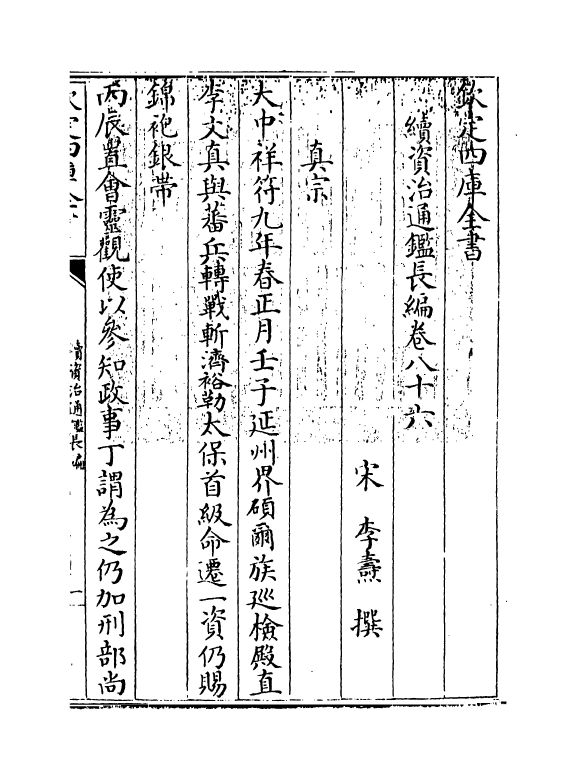 欽定四庫全書
續資治通鑑長編卷八十六
宋 李燾 撰
真宗
大中祥符九年春正月壬子延州界碩爾族巡檢殿直
李文真與蕃兵轉戰斬濟裕勒太保首級命遷一資仍賜
錦袍銀帶
丙辰置會靈觀使以參知政事丁謂為之仍加刑部尚
欽定四庫全書
續資治通鑑長編